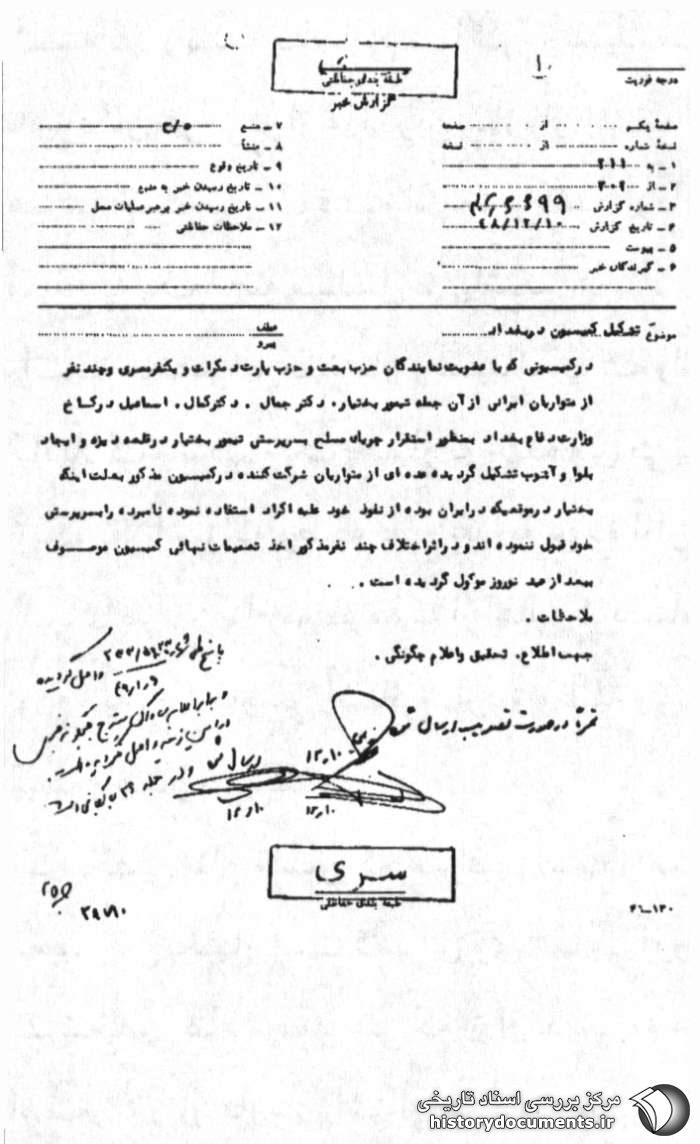 درجه فوریت
طبقه بندی حفاظتی
گزارش خبر
صفحهٔ یکم از صفحه
نسخهٔ شماره از نسخه
۱ ـ به ۲۱۱
۲ ـ از ۲۰۲
۳ ـ شماره گزارش
۴ ـ تاریخ گزارش ۴۸/۱۲/۱۰
۵ ـ پیوست
۶ ـ گیرندگان خبر
۷ ـ منبع
۸ ـ منشأ
۹ ـ تاریخ وقوع
۱۰ ـ تاریخ رسیدن خبر به منبع
۱۱ ـ تاریخ رسیدن خبر برهبر عملیات محل
۱۲ ـ ملاحظات حفاظتی
موضوع تشکیل کمیسیون در بغداد
عطف
پیرو
در کمیسیونی که با عضویت نمایندگان حزب بعث و حزب پارت دمکرات و یکنفر مصری و چند نفر
از متواریان ایرانی از آن جمله تیمور بختیار، دکتر جمال، دکتر کمال، اسماعیل در کاخ
وزارت دفاع بغداد بمنظور استقرار جریان مسلح بسرپرستی تیمور بختیار در قلعه دیزه و ایجاد
بلوا و آشوب تشکیل گردیده عده ای از متواریان شرکت کننده در کمیسیون مذکور بعلت اینکه
بختیار در موقعیکه در ایران بوده از نفوذ خود علیه اکراد استفاده نموده نامبرده را بسرپرستی
خود قبول ننموده اند و در اثر اختلاف چند نفر مذکور اخذ تصمیمات نهائی کمیسیون موصوف
ببعد از عید نوروز موکول گردیده است.
ملاحظات.
جهت اطلاع، تحقیق و اعلام چگونگی.
در صورت تصویب ارسال
۱۲/۱۰
۱۲/۱۰
۱۲/۱۰
سری
طبقه بندی حفاظتی
۴۶-۱۳۰
مرکز بررسی اسناد تاریخی
historydocuments.ir